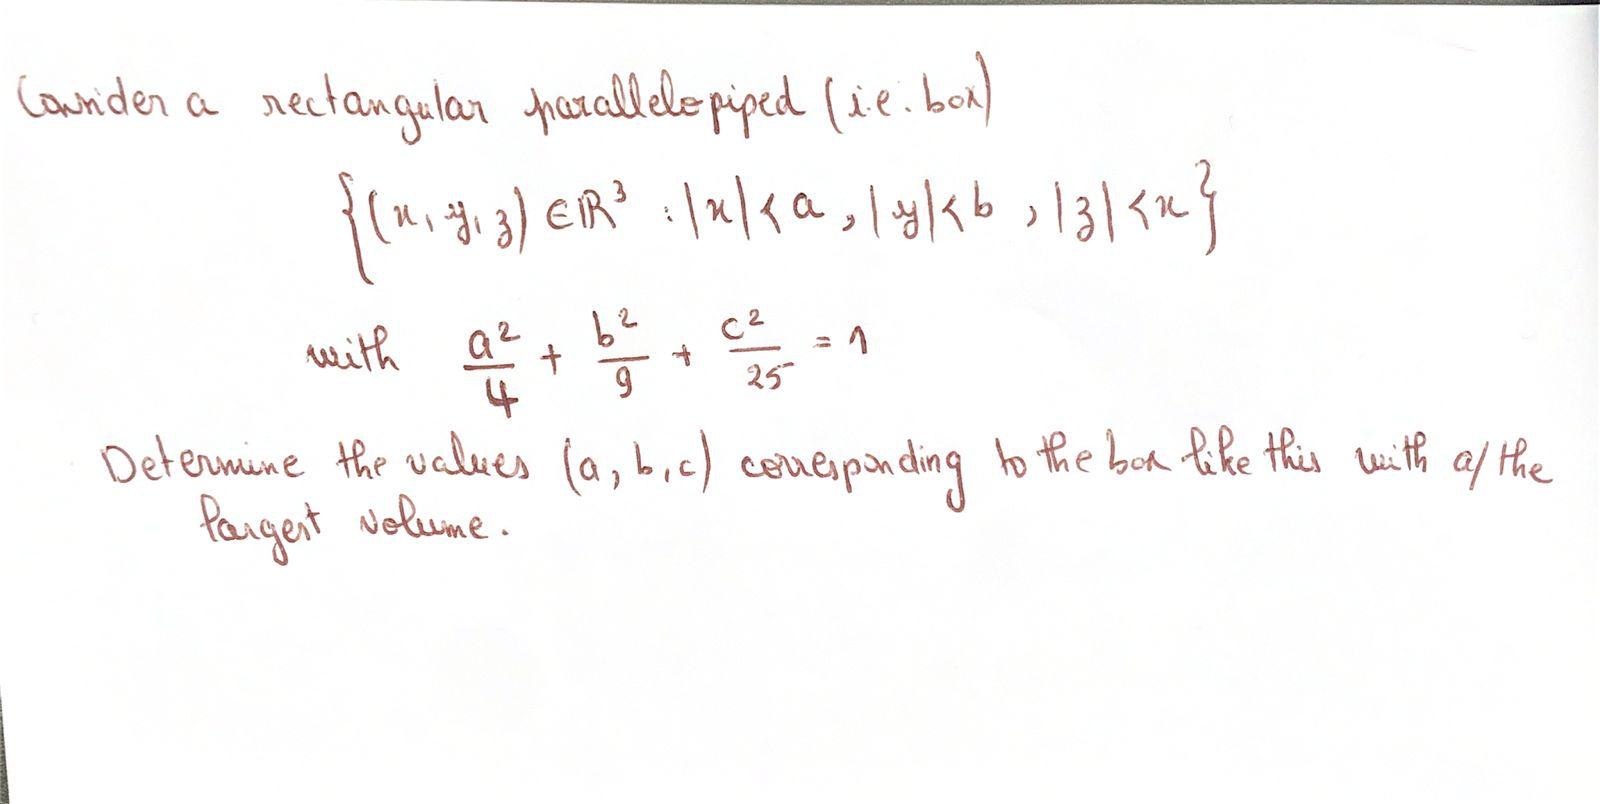 Consider a rectangular parallelopiped (i.e. box)
{(x, y, z) ∈ ℝ³ : |x| < a, |y| < b, |z| < x}
with a²/4 + b²/9 + c²/25 = 1
Determine the values (a, b, c) corresponding to the box like this with a/the
largest volume.